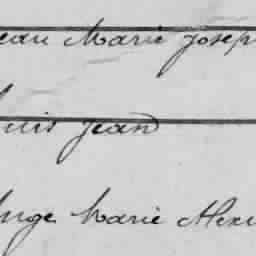 eau Marie Josep
uis Jean
Ange Marie Alexi